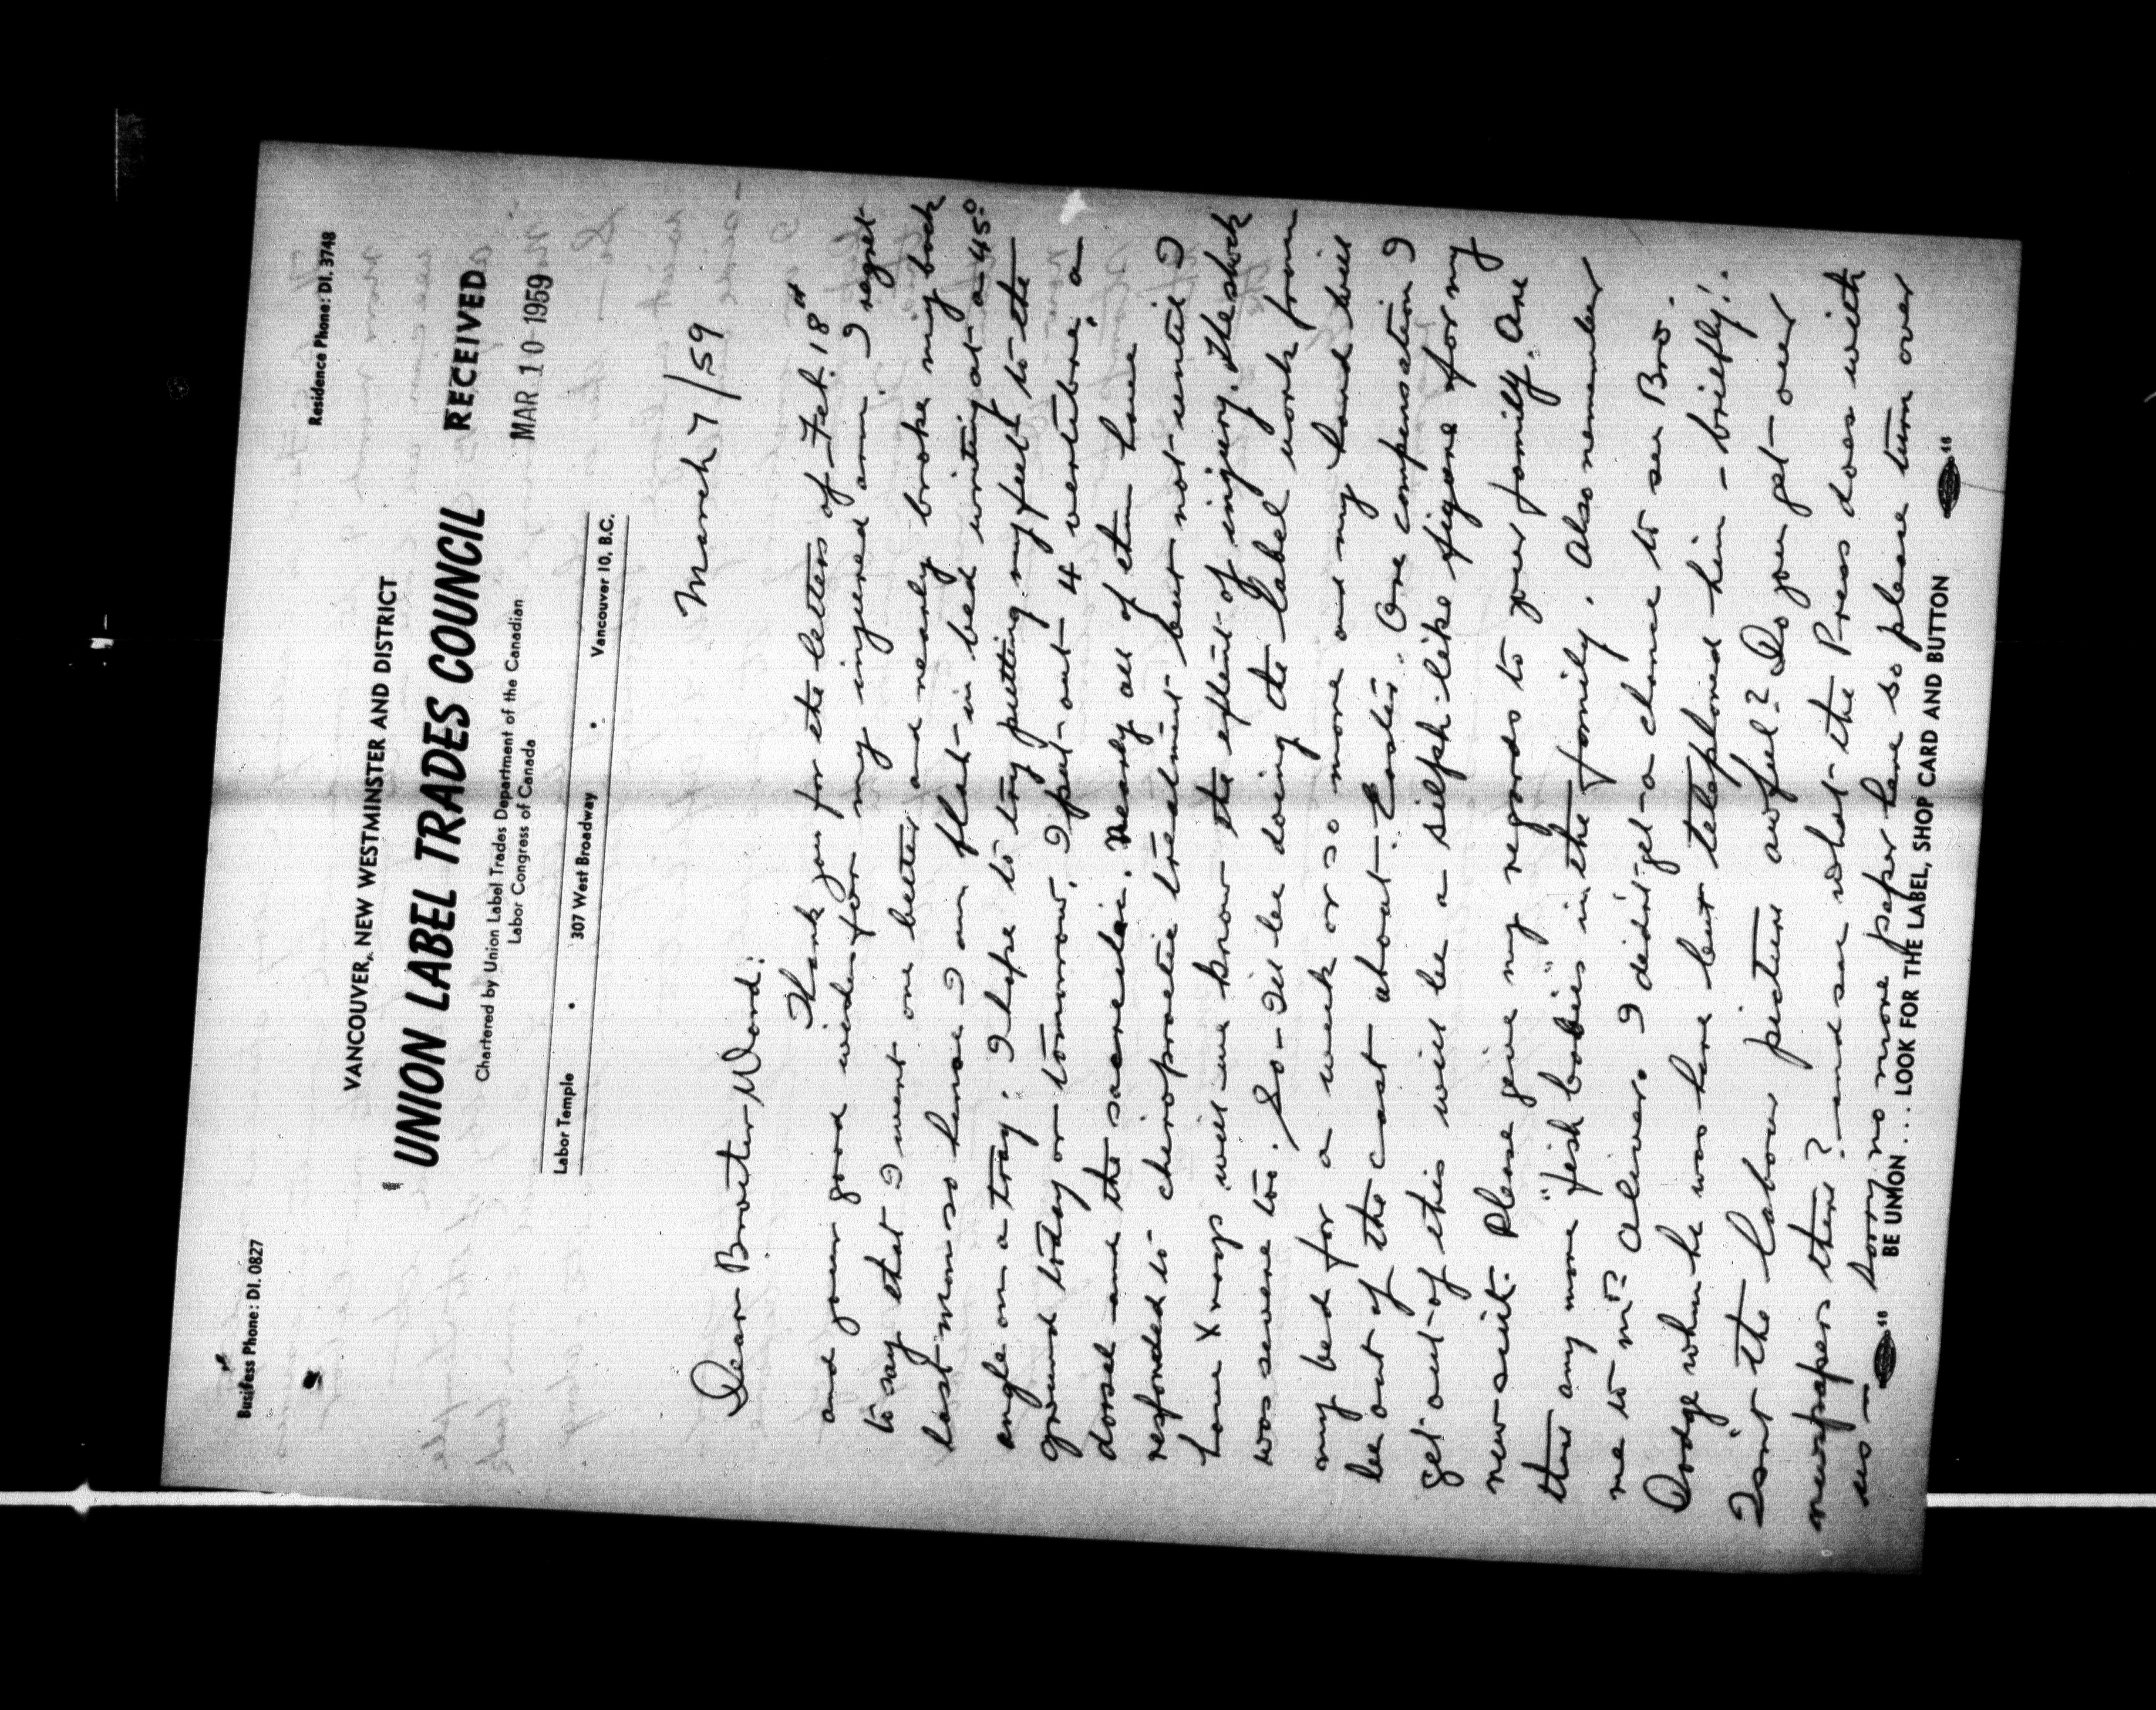 Business Phone: DI. 0827
Residence Phone: DI. 3748
VANCOUVER, NEW WESTMINSTER AND DISTRICT
UNION LABEL TRADES COUNCIL
Chartered by Union Label Trades Department of the Canadian
Labor Congress of Canada
RECEIVED
MAR 10 1959
Labor Temple • 307 West Broadway • Vancouver 10, B.C.
March 7/59
Dear Brother Ward:
Thank you for the letters of Feb. 18th
and your good wishes for my injured arm. I regret
to say that I went one better and nearly broke my back
last Mon. so hence I am flat in bed writing at a 45°
angle on a tray. I hope to try putting my feet to the
ground today or tomorrow. I put out 4 vertibrae, a
dorsal and the sacroeliac. Nearly all of them have
responded to chiropractic treatment but not until I
have X rays will we know the extent of injury. The shock
was severe too. So - I'll be doing the label work from
my bed for a week or so more and my hand will
be out of the cast about Easter. One compensation I
get out of this will be a silph-like figure for my
new suit. Please give my regards to your family. Are
there any more "fish babies" in the family. Also remember
me to Mr? Oliver. I didn't get a chance to see Bro.
Dodge when he was here but telephoned him - briefly!.
Isn't the labour picture awful? Do you get over
newspapers there? and see what the Press does with
us —
Sorry no more paper here so please turn over
BE UNION ... LOOK FOR THE LABEL, SHOP CARD AND BUTTON